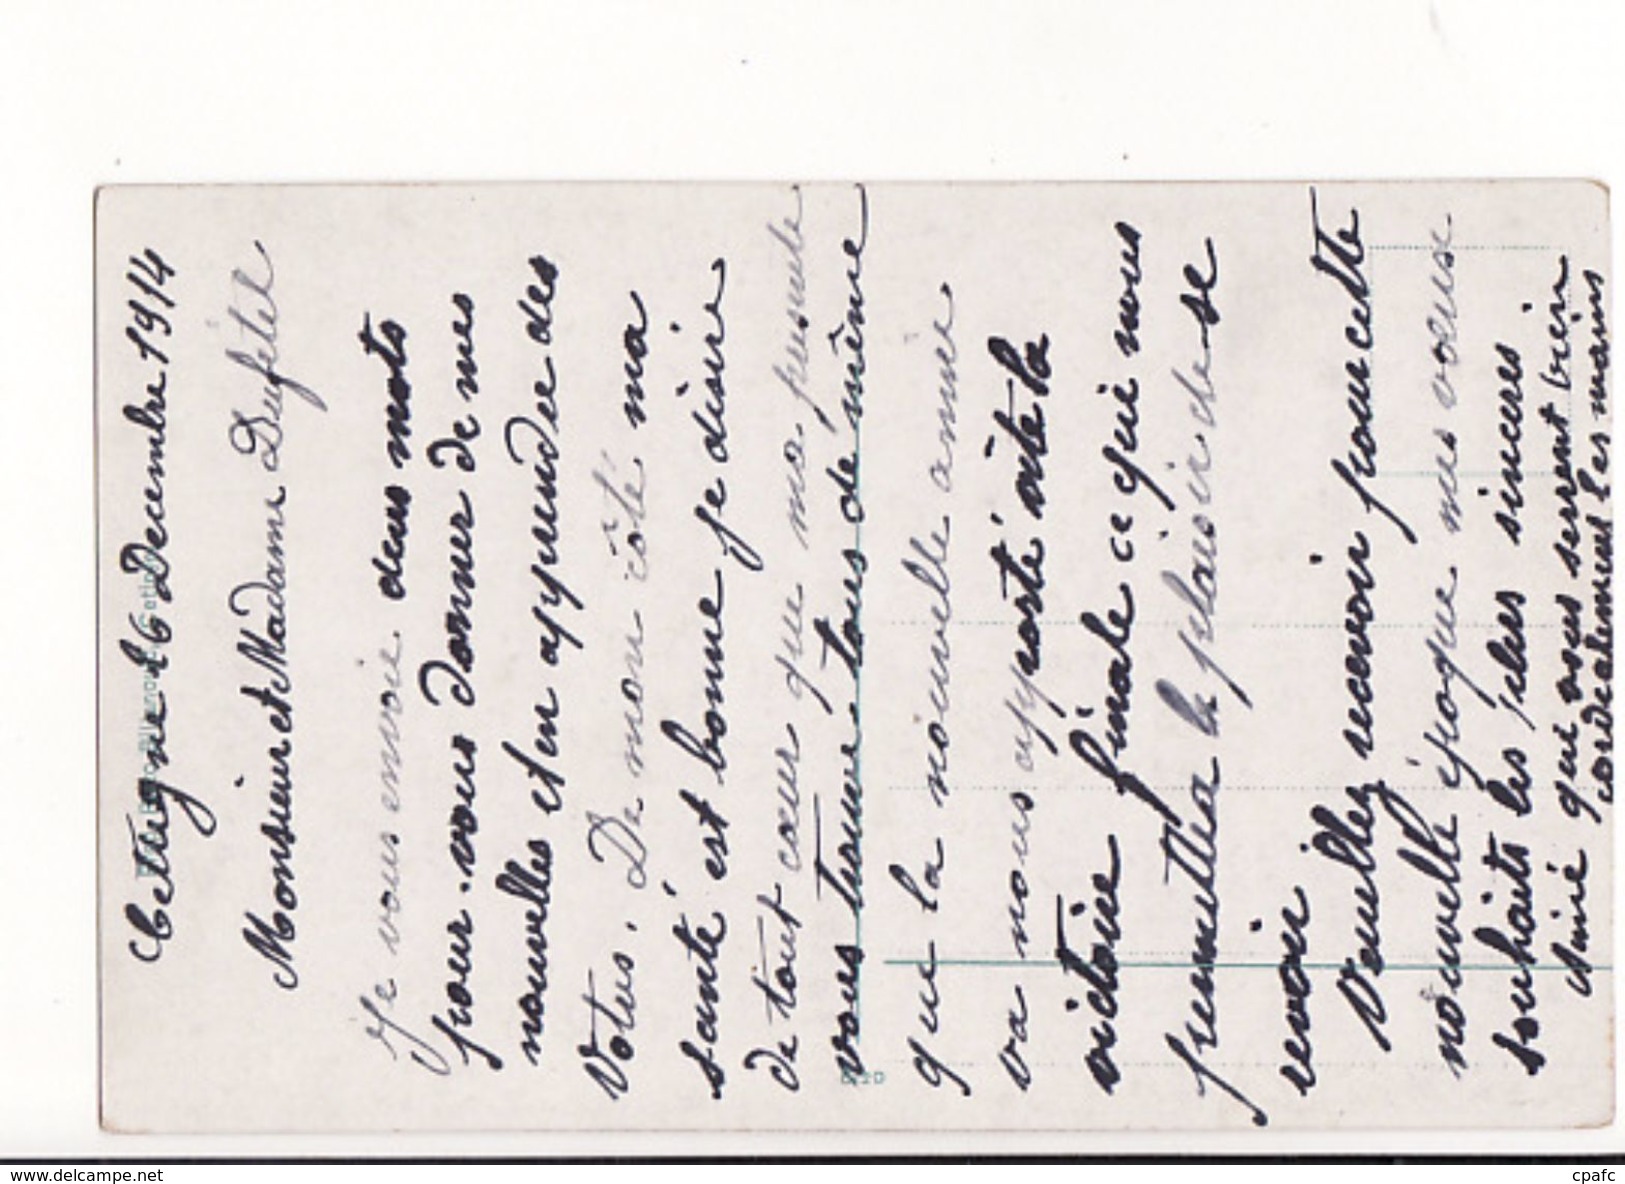 Cettigne 26 Decembre 1914
Monsieur et Madame Dufétel
Je vous envoie deux mots
pour vous donner de mes
nouvelles et en apprendre des
Votres. De mon côté ma
santé est bonne je désire
de tout cœur que ma presente
vous trouve tous de même
que la nouvelle année
va nous apporté vite la
victoire finale ce qui nous
permettra le plaisir de se
revoir
Veuillez recevoir pour cette
nouvelle époque mes vœux
souhaits les plus sinceres
Aimé qui vous serrent bien
cordialement les mains
delcampe.net
cpafc